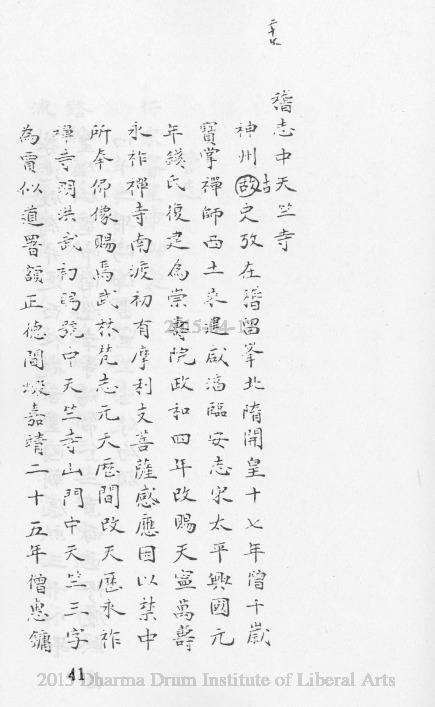 舊志中天竺寺
神州故古史攷在稽留峯北隋開皇十七年僧千歲
寶掌禪師西土來建咸湻臨安志宋太平興國元
年錢氏復建為崇壽院政和四年改賜天寧萬壽
永祚禪寺南渡初有摩利支菩薩感應因以禁中
所奉佛像賜焉武林梵志元天厯間改天厯永祚
禪寺明洪武初賜號中天竺寺山門中天竺三字
為賈似道署額正德間燬嘉靖二十五年僧惠鏞
41
2015 Dharma Drum Institute of Liberal Arts